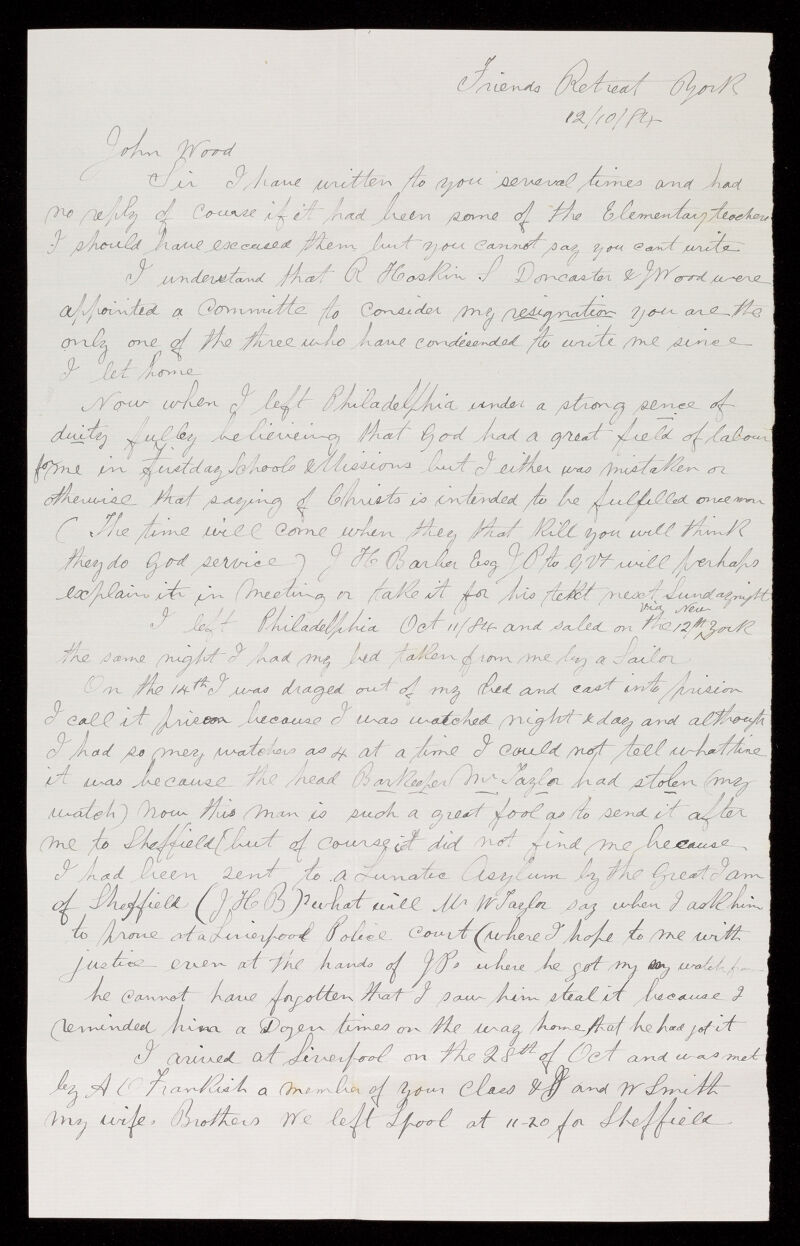 Friends Retreat York
12/10/84
John Wood
Sir I have written to you several times and had
no reply of couase if it had been some of the Elementary teachers
I should have excecused them but you cannot say you cant write
I understand that R Hoskin S Doncaster & J Wood were
appointed a committe to consider my resignation you are the
only one of the three who have condesended to write me since
I let home
Now when I left Philadelphia under a strong sence of
duity fulley believeing that God had a great field of labour
for me in Firstday Schools & Missions but I either was mistaken or
otherwise that saying of Christs is intended to be fulfilled once more
( The time will come when they that kill you will think
they do God service ) J H Barber Esq J P to QVt will perhaps
explain it in Meeting or take it for his tekt next Sunday night
via New
I left Philadelphia Oct 11/84 and saled on the 12th York
the same night I had my bed taken from me by a Sailor
On the 14th I was draged out of my bed and cast into prision
I call it prison because I was watched night & day and although
I had so mey watchers as 4 at a time I could not tell what time
it was because the head Barkeeper Mr Taylor had stolen (my
watch) Now this man is such a great fool as to send it after
me to Sheffield (but of course it did not find me because
I had been sent to a Lunatic Asylum by the Great I am
of Sheffield (J H B) what will Mr W Taylor say when I ask him
to prove at a Liverpool Police court (where I hope to me with
justice even at the hands of JPs where he got my watch from
he cannot have forgotten that I saw him steal it because I
reminded him a Dozen times on the way home that he had got it
I arived at Liverpool on the 28th of Oct and was met
by A C Frankish a member of your class & J and W Smith
my wifes Brothers We left Lpool at 11-20 for Sheffield